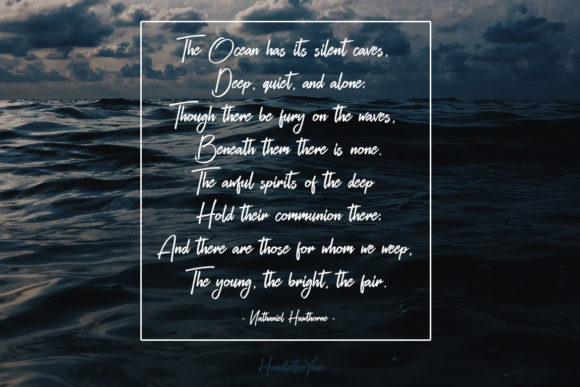 The Ocean has its silent caves,
Deep, quiet, and alone;
Though there be fury on the waves,
Beneath them there is none.
The awful spirits of the deep
Hold their communion there;
And there are those for whom we weep,
The young, the bright, the fair.
- Nathaniel Hawthorne -
HandletterYean